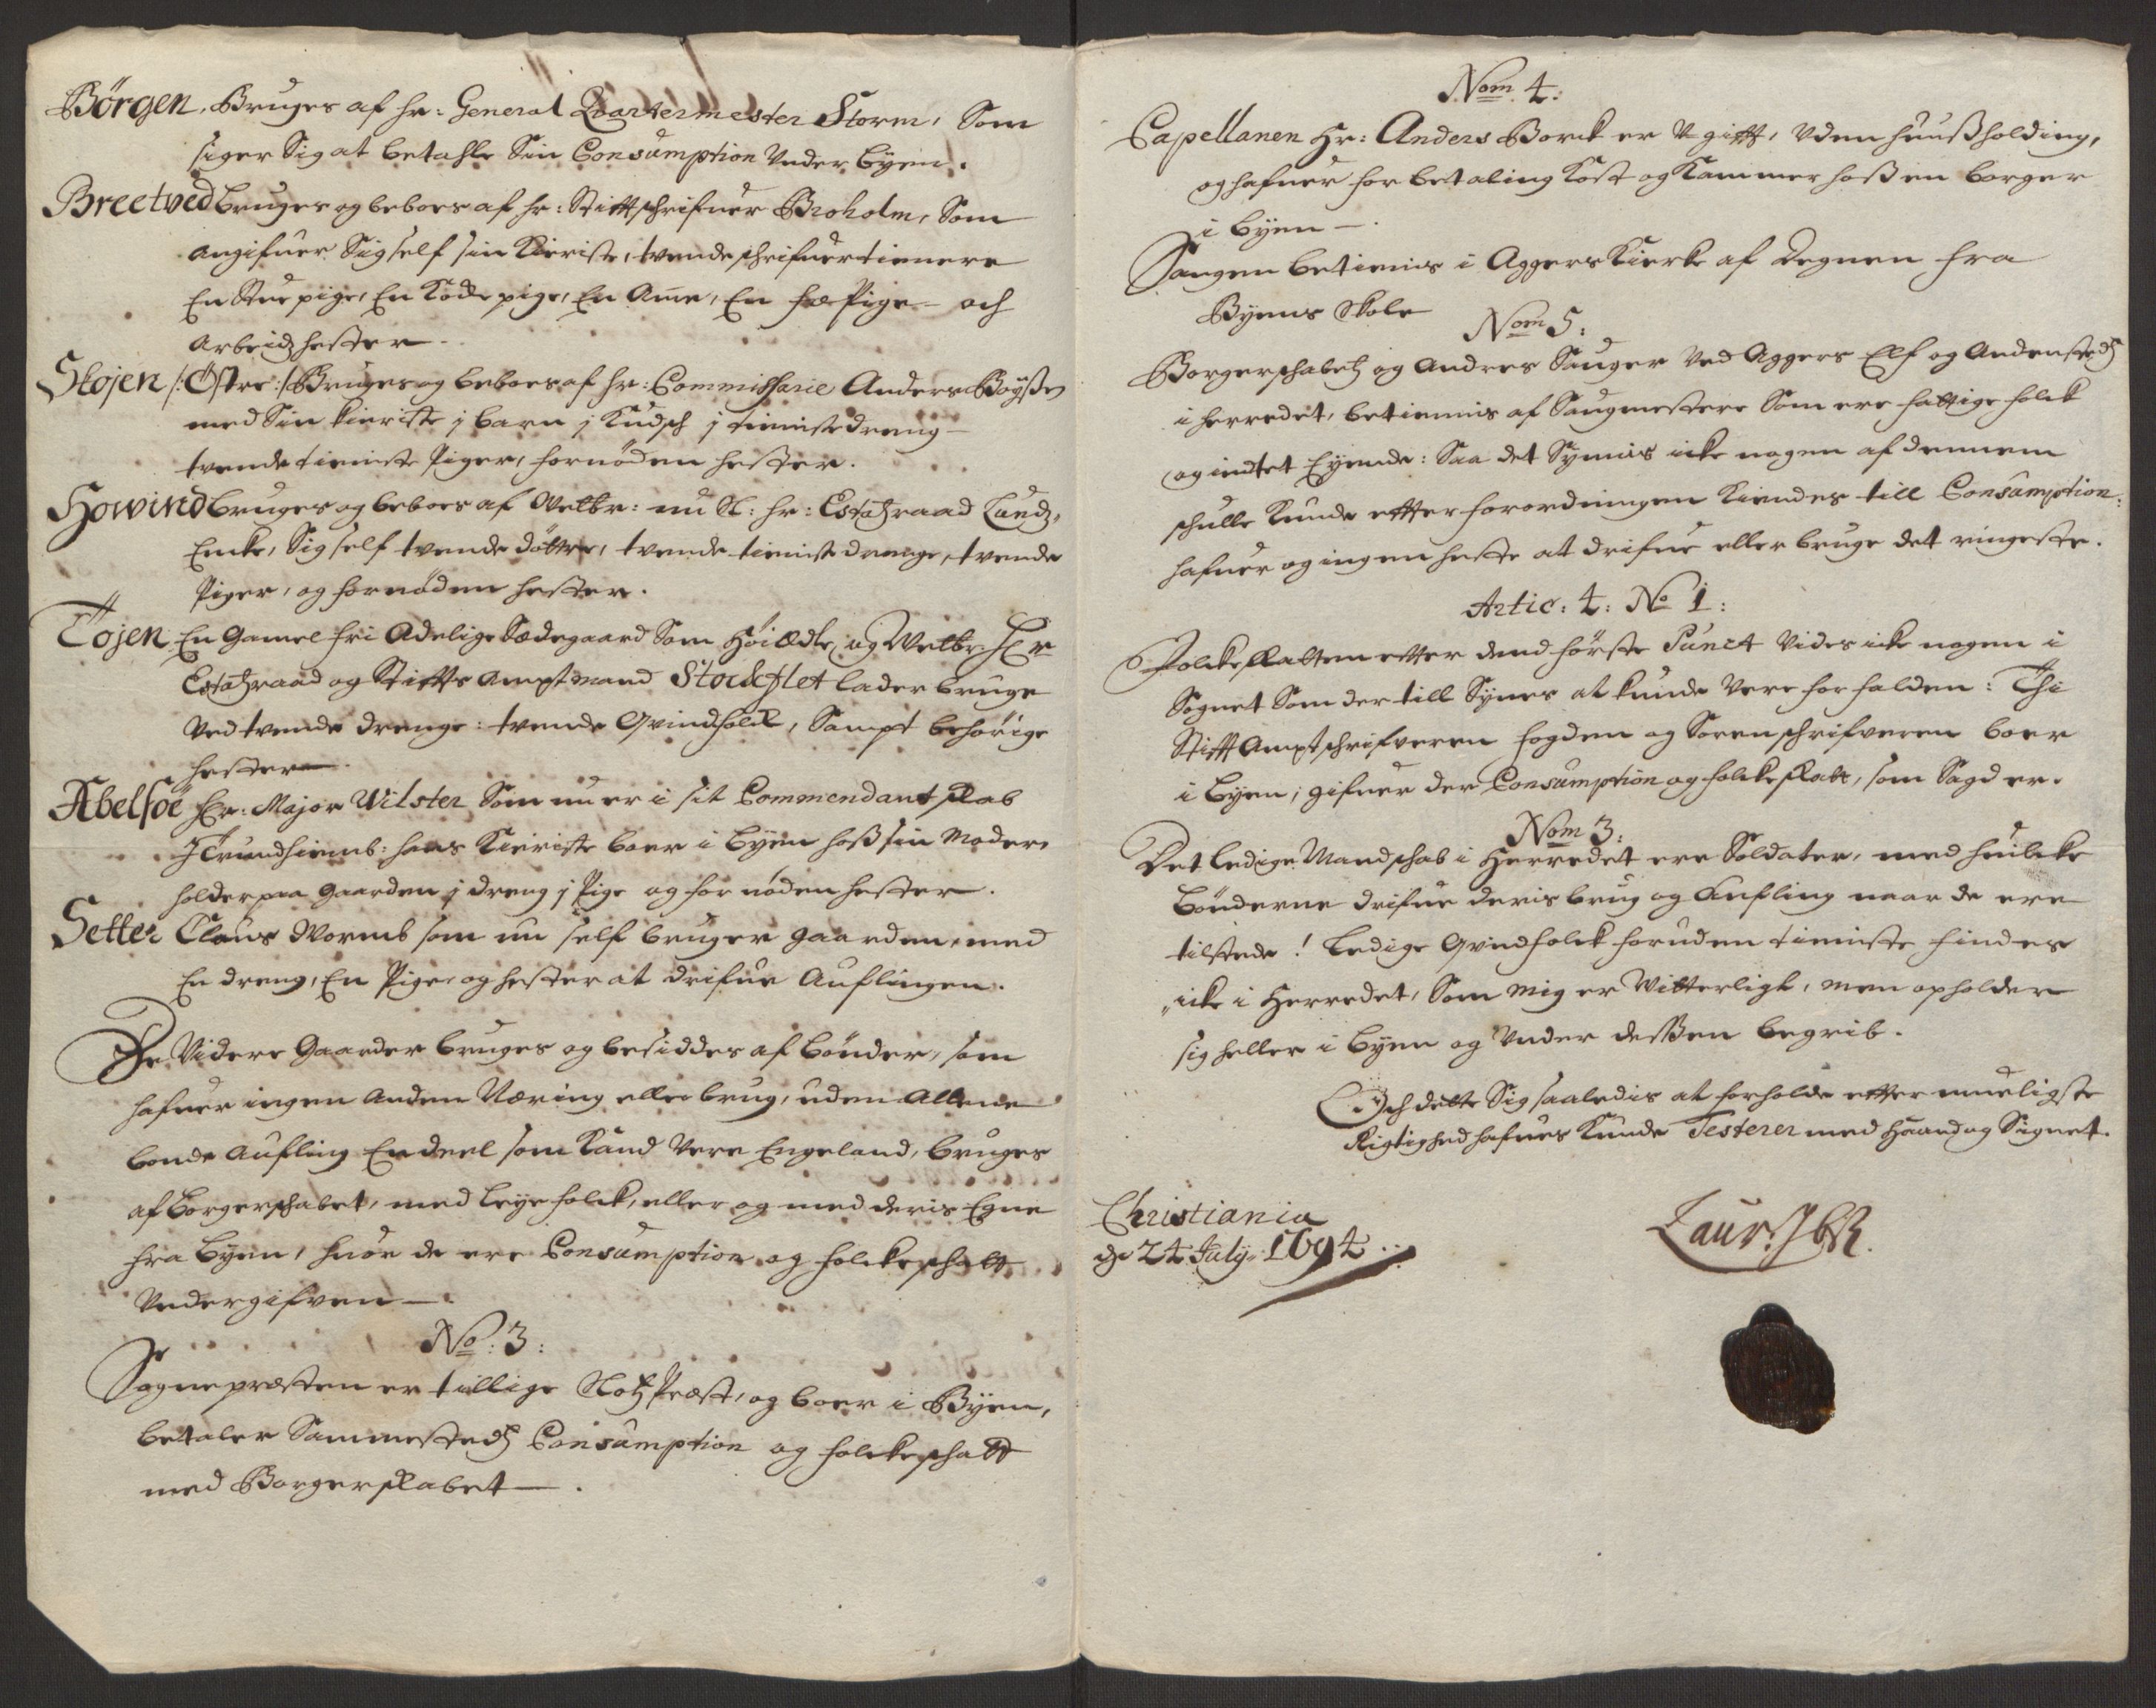 Börgen, Bruges af hr: General Qvartermester Storm, Som
siger Sig at betahle Sin Consumption Under Byen.
Breetved bruges og beboes af hr: Stiftschrifuer Broholm, Som
angifuer Sig self sin Kieriste, tvende schrifuertienere
En Stue pige, En Kocke pige, En Ame, En fæ Pige och
Arbeidhester.
Stojen /: Östre :/ Bruges og beboes af hr: Commissarie Anders Böyssen
med Sin kieriste j barn j Kudsch j tieniste dreng
tvende tieniste Piger, fornöden hester.
Howind bruges og beboes af Welbr: nu Sl: hr: Estatzraad Lundz,
Encke, Sig self tvende döttre, tvende tieniste drenge, tvende
Piger, og fornöden hester.
Töjen En Gamel fri Adelige Sædegaard Som Höiædle og Welbr Hr
Estatzraad og Stifts Amptmand Stockflet lader bruge
Ved tvende drenge: tvende Qvindfolck, Sampt behörige
hester
Abelsöe Hr: Major Wilster Som nu er i sit Commendantskab
I Trundhiemb: hans Kieriste boer i byen hoss sin Moder,
holder paa gaarden j dreng j Pige og fornöden hester.
Setter Claus Wormb som nu self bruger gaarden, med
En dreng, En Pige og hester at drifue Auflingen.
De Videre Gaarder bruges og besiddes af bönder, som
hafuer ingen anden Næring eller brug, uden Allene
bonde Aufling En deel som Kand Vere Engeland, bruges
af borgerschabet, med leye folck, eller og med deris Egne
fra byen, huor de ere Consumption og folckeschatt
Undergifven.
No: 3:
Sognepræsten er tillige Slotz Præst, og boer i Byen,
betaler Sammestedz Consumption og folckeschatt
med Borgerskabet.
Nom 4:
Capellanen Hr: Anders Borck er Ugifft, Uden huussholding,
og hafuer for betaling Kost og Kammer hoss en borger
i byen.
Sangen betienis i Aggers Kierke af Degnen fra
Byens Skole
Nom 5:
Borgerschabetz og Andres Sauger Ved Aggers Elf og Andenstedz
i herredet, betiennis af Saugmestere Som ere fattige folck
og indtet Eyende: Saa det Synnis icke nogen af dennem
schulle Kunde effter forordningen Kiendes till Consumption:
hafuer og ingen heste at drifue eller bruge det ringeste.
Artic: 4: No 1:
Folckeskatten etter dend förste Punct Vides icke nogen i
Sognet Som der till Synes at kunde Vere forfalden: Thi
Stifft Amptschrifveren fogden og Sorenschrifveren boer
i byen, gifuer der Consumption og folckeskatt, som Sagd er.
Nom 3:
Det ledige Mandschab i Herredet ere Soldater, med huilcke
bönderne drifue deris brug og Aufling naar de ere
tilstede! ledige Qvindfolck foruden tieniste findes
icke i Herredet, Som mig er Witterligt, men opholder
sig heller i byen og Under dessen begrib.
Och dette Sig saaledis at forholde etter mueligste
Rigtighed hafues Kunde Testerer med Haand og Signet.
Christiania
de 24 July 1694